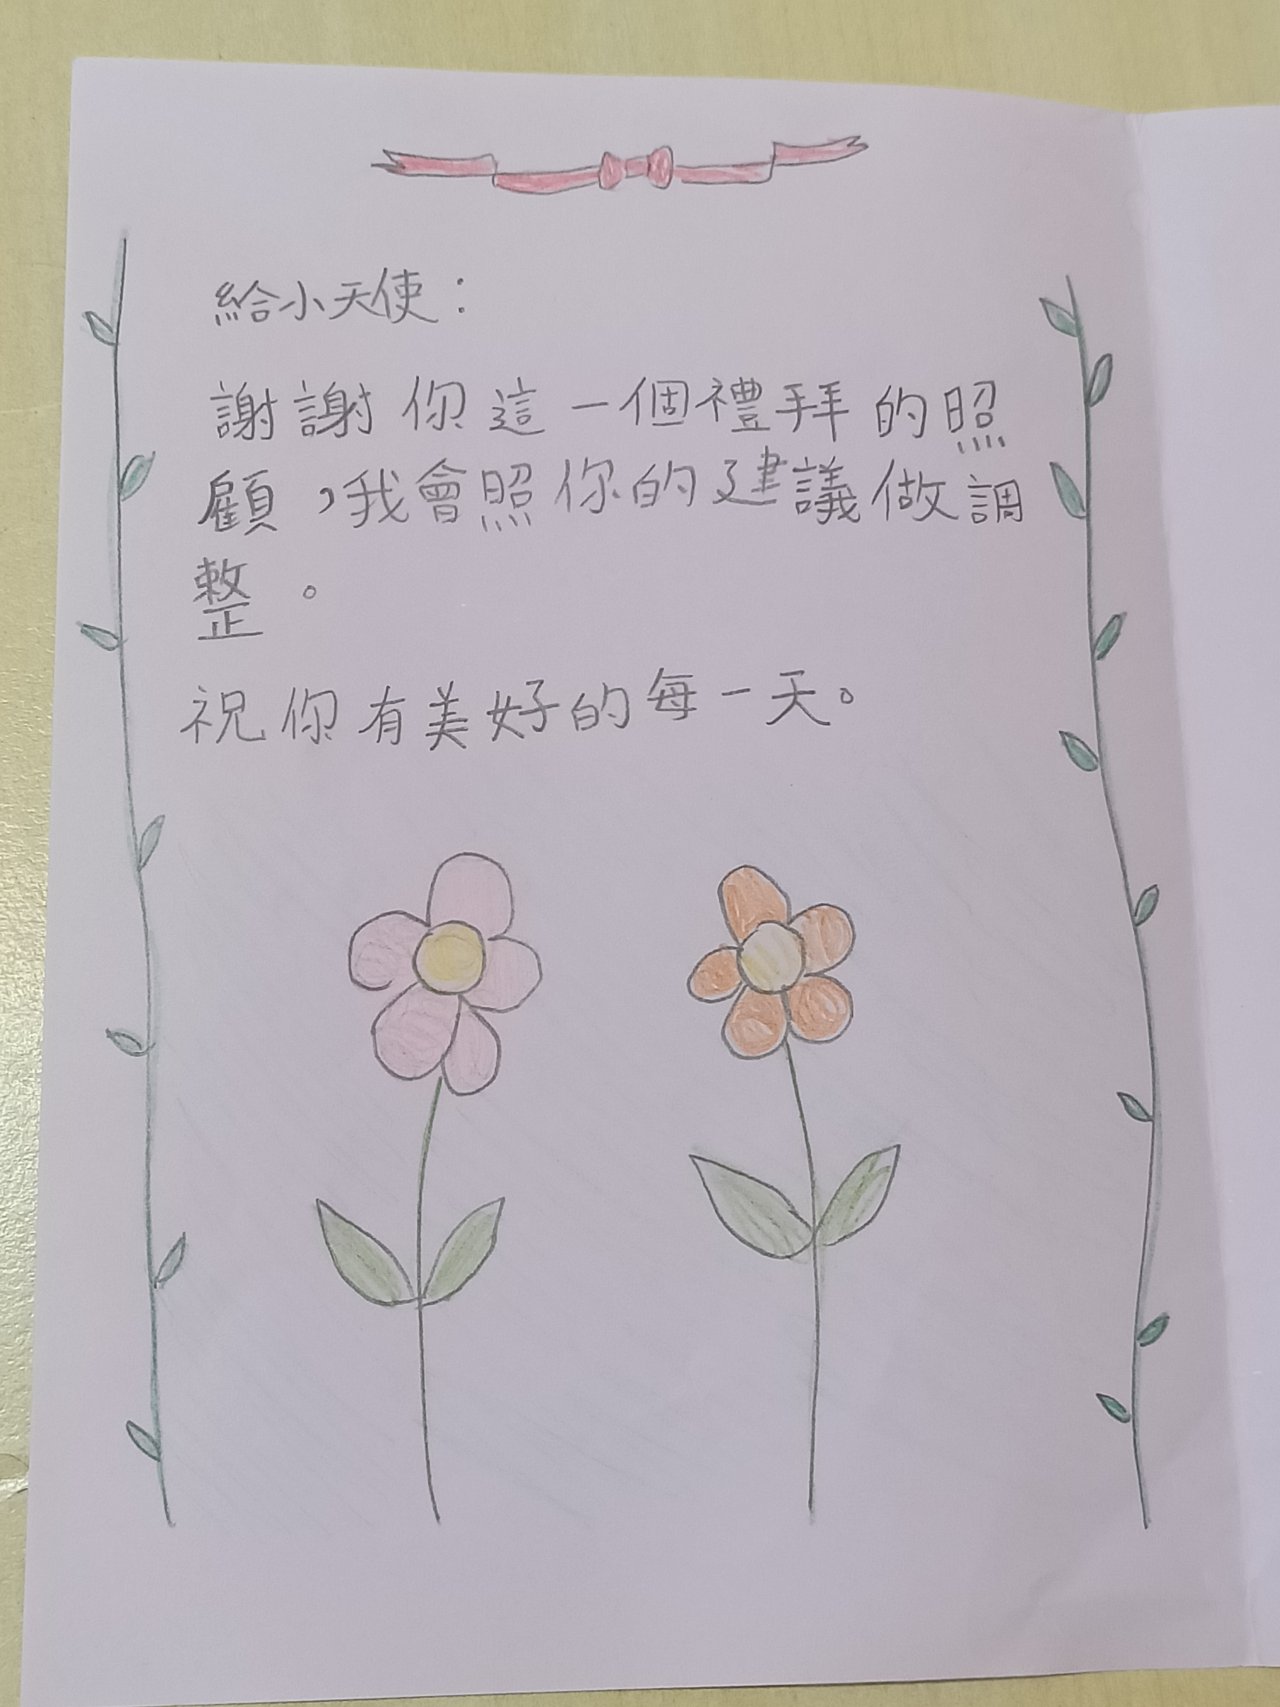 給小天使：
謝謝你這一個禮拜的照
顧，我會照你的建議做調
整。
祝你有美好的每一天。